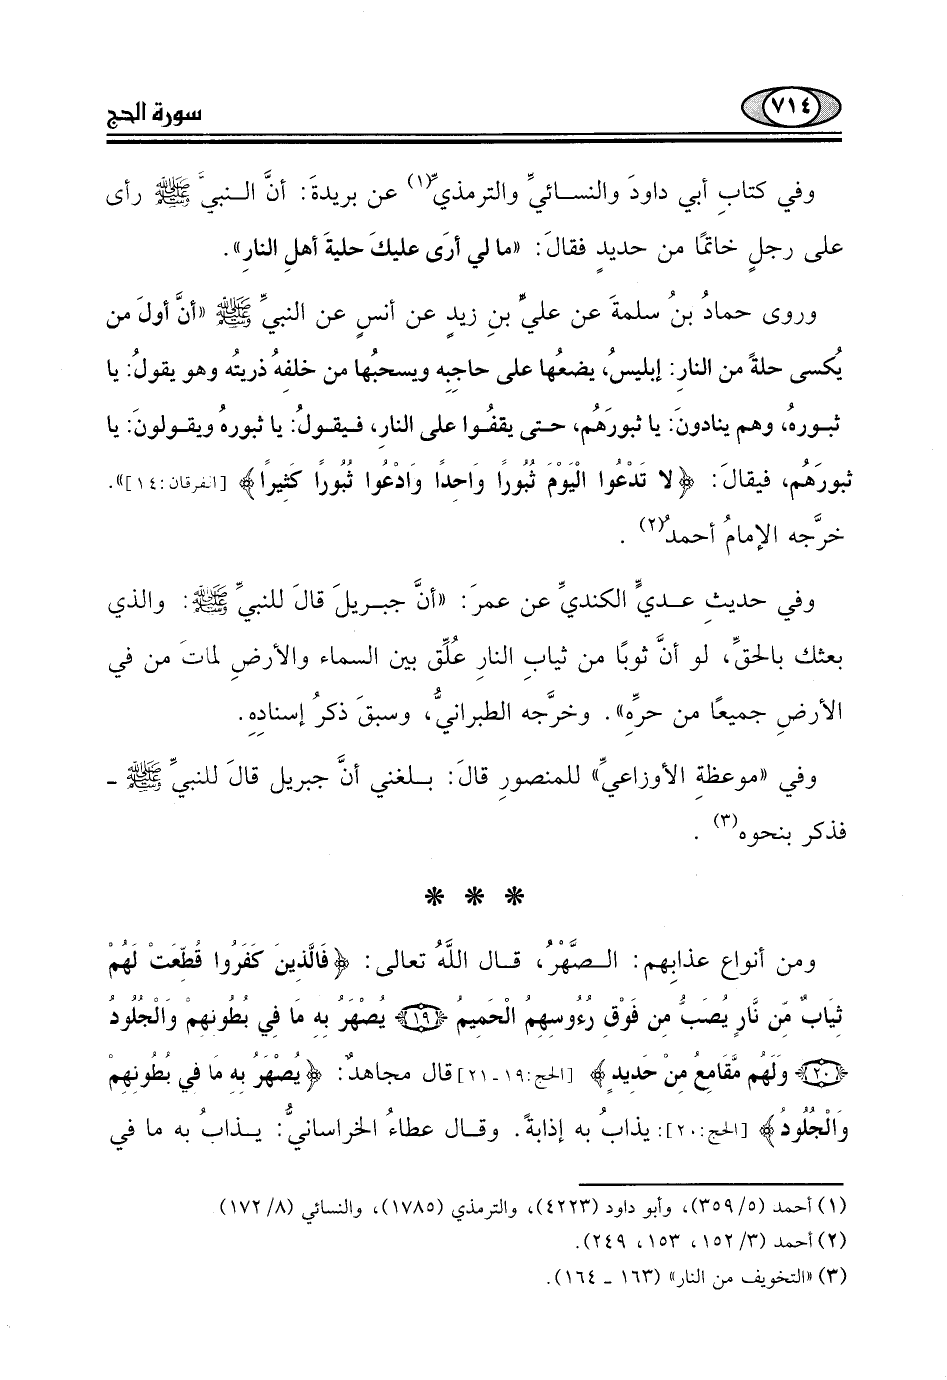 ٧١٤
سورة الحج
وفي كتابِ أبي داودَ والنسائيِّ والترمذيِّ(١) عن بريدةَ: أنَّ النبيَّ ﷺ رأى
على رجلٍ خاتمًا من حديدٍ فقالَ: «ما لي أرَى عليكَ حليةَ أهلِ النارِ».
وروى حمادُ بنُ سلمةَ عن عليِّ بنِ زيدٍ عن أنسٍ عن النبيِّ ﷺ «أنَّ أولَ من
يُكسى حلةً من النارِ: إبليسُ، يضعُها على حاجبِه ويسحبُها من خلفهُ ذريتُه وهو يقولُ: يا
ثبورهُ، وهم ينادونَ: يا ثبورَهُم، حتى يقفُوا على النارِ، فيقولُ: يا ثبورهُ ويقولونَ: يا
ثبورَهُم، فيقالَ: ﴿لا تَدْعُوا الْيَوْمَ ثُبُوراً وَاحِداً وَادْعُوا ثُبُوراً كَثِيراً﴾ [الفرقان:١٤]».
خرَّجه الإمامُ أحمدُ(٢) .
وفي حديثِ عديٍّ الكنديِّ عن عمرَ: «أنَّ جبريلَ قالَ للنبيِّ ﷺ: والذي
بعثك بالحقِّ، لو أنَّ ثوبًا من ثيابِ النارِ عُلِّق بين السماء والأرضِ لماتَ من في
الأرضِ جميعًا من حرِّه». وخرَّجه الطبرانيُّ، وسبقَ ذكرُ إسنادِهِ.
وفي «موعظةِ الأوزاعيِّ» للمنصورِ قالَ: بلغني أنَّ جبريل قالَ للنبيِّ ﷺ -
فذكر بنحوه(٣) .
* * *
ومن أنواع عذابِهم: الصَّهْرُ، قال اللَّهُ تعالى: ﴿فَالَّذِينَ كَفَرُوا قُطِّعَتْ لَهُمْ
ثِيَابٌ مِّن نَّارٍ يُصَبُّ مِن فَوْقِ رُءُوسِهِمُ الْحَمِيمُ ﴿١٩﴾ يُصْهَرُ بِهِ مَا فِي بُطُونِهِمْ وَالْجُلُودُ
﴿٢٠﴾ وَلَهُم مَّقَامِعُ مِنْ حَدِيدٍ﴾ [الحج:١٩-٢١] قال مجاهدٌ: ﴿يُصْهَرُ بِهِ مَا فِي بُطُونِهِمْ
وَالْجُلُودُ﴾ [الحج:٢٠]: يذابُ به إذابةً. وقال عطاءُ الخراسانيُّ: يذابُ به ما في
(١) أحمد (٥/ ٣٥٩)، وأبو داود (٤٢٢٣)، والترمذي (١٧٨٥)، والنسائي (٨/ ١٧٢)
(٢) أحمد (٣/ ١٥٢، ١٥٣، ٢٤٩).
(٣) «التخويف من النار» (١٦٣ - ١٦٤).